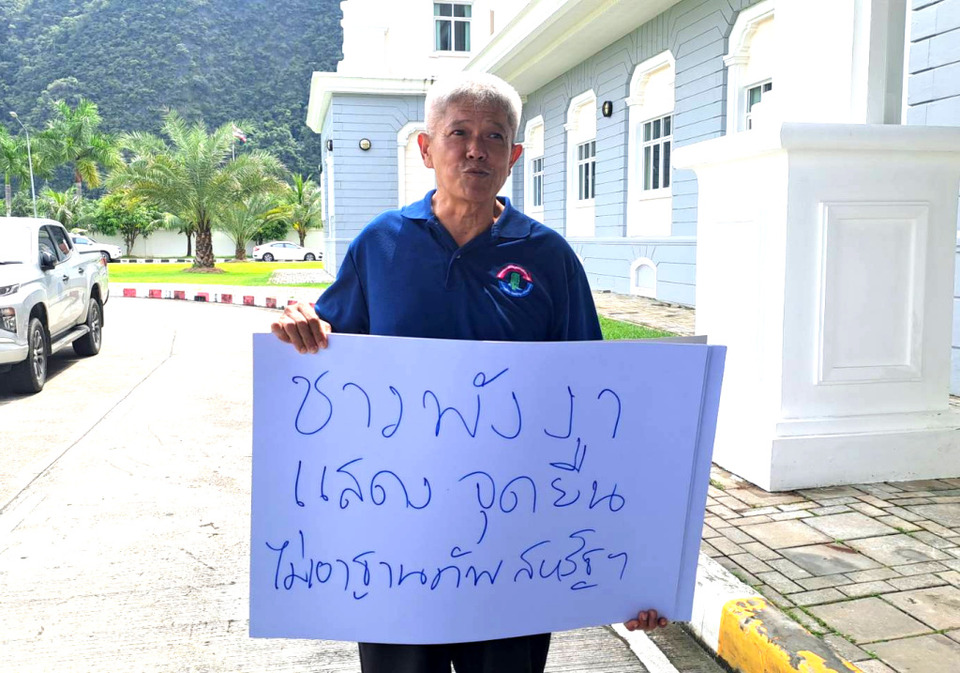 ชาวพังงา
แสดงจุดยืน
ไม่เอาฐานทัพ สหรัฐฯ